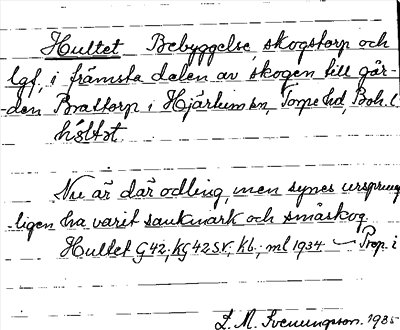 Hultet Bebyggelse, skogstorp och
lgf, i främsta delen av skogen till går-
den Brattorp i Hjärtum sn, Torpe hd, Boh. l.
hỗltət
Nu är där odling, men synes ursprung
ligen ha varit sankmark och småskog.
Hultet G42; KG42SV; Kb.; ml 1934 — Prep. i
L. M. Svenungsson. 1935